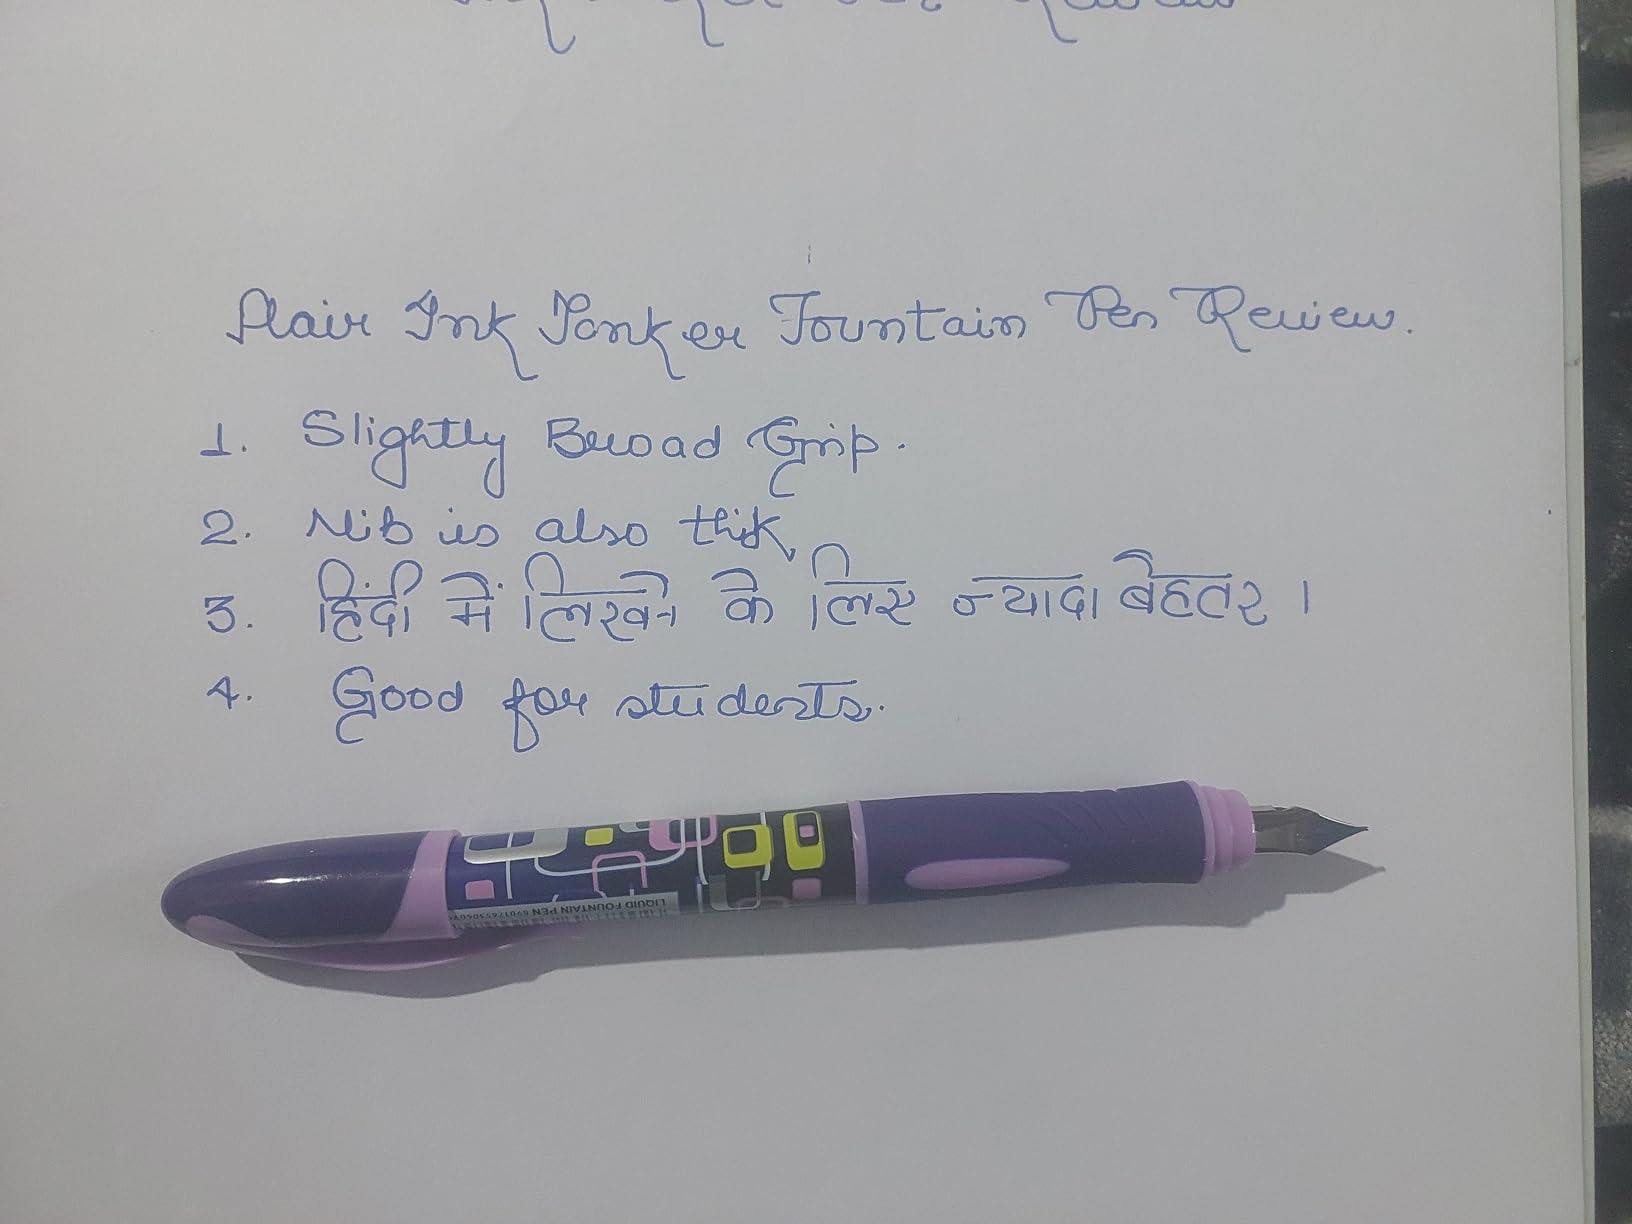 Flair Ink Tanker Fountain Pen Review.
1. Slightly Broad Grip.
2. Nib is also thik,
3. हिंदी में लिखने के लिए ज्यादा बेहतर ।
4. Good for students.
LIQUID FOUNTAIN PEN